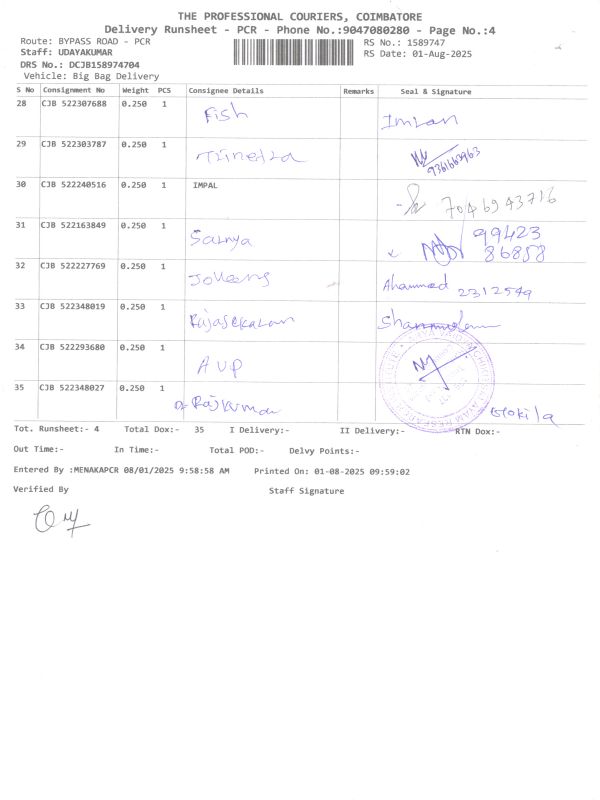 THE PROFESSIONAL COURIERS, COIMBATORE
Delivery Runsheet - PCR - Phone No.:9047080280 - Page No.:4
Route: BYPASS ROAD - PCR RS No.: 1589747
Staff: UDAYAKUMAR RS Date: 01-Aug-2025
DRS No.: DCJB158974704
Vehicle: Big Bag Delivery
S No Consignment No Weight PCS Consignee Details Remarks Seal & Signature
28 CJB 522307688 0.250 1 Fish Imran
29 CJB 522303787 0.250 1 Trinetra 9361663963
30 CJB 522240516 0.250 1 IMPAL 7046943716
31 CJB 522163849 0.250 1 Saranya 99423
86858
32 CJB 522227769 0.250 1 Ahammed 2312549
33 CJB 522348019 0.250 1 Rajasekaran
34 CJB 522293680 0.250 1 AVP
35 CJB 522348027 0.250 1 Dr Rajkumar Gokila
Tot. Runsheet:- 4 Total Dox:- 35 I Delivery:- II Delivery:- RTN Dox:-
Out Time:- In Time:- Total POD:- Delvy Points:-
Entered By :MENAKAPCR 08/01/2025 9:58:58 AM Printed On: 01-08-2025 09:59:02
Verified By Staff Signature